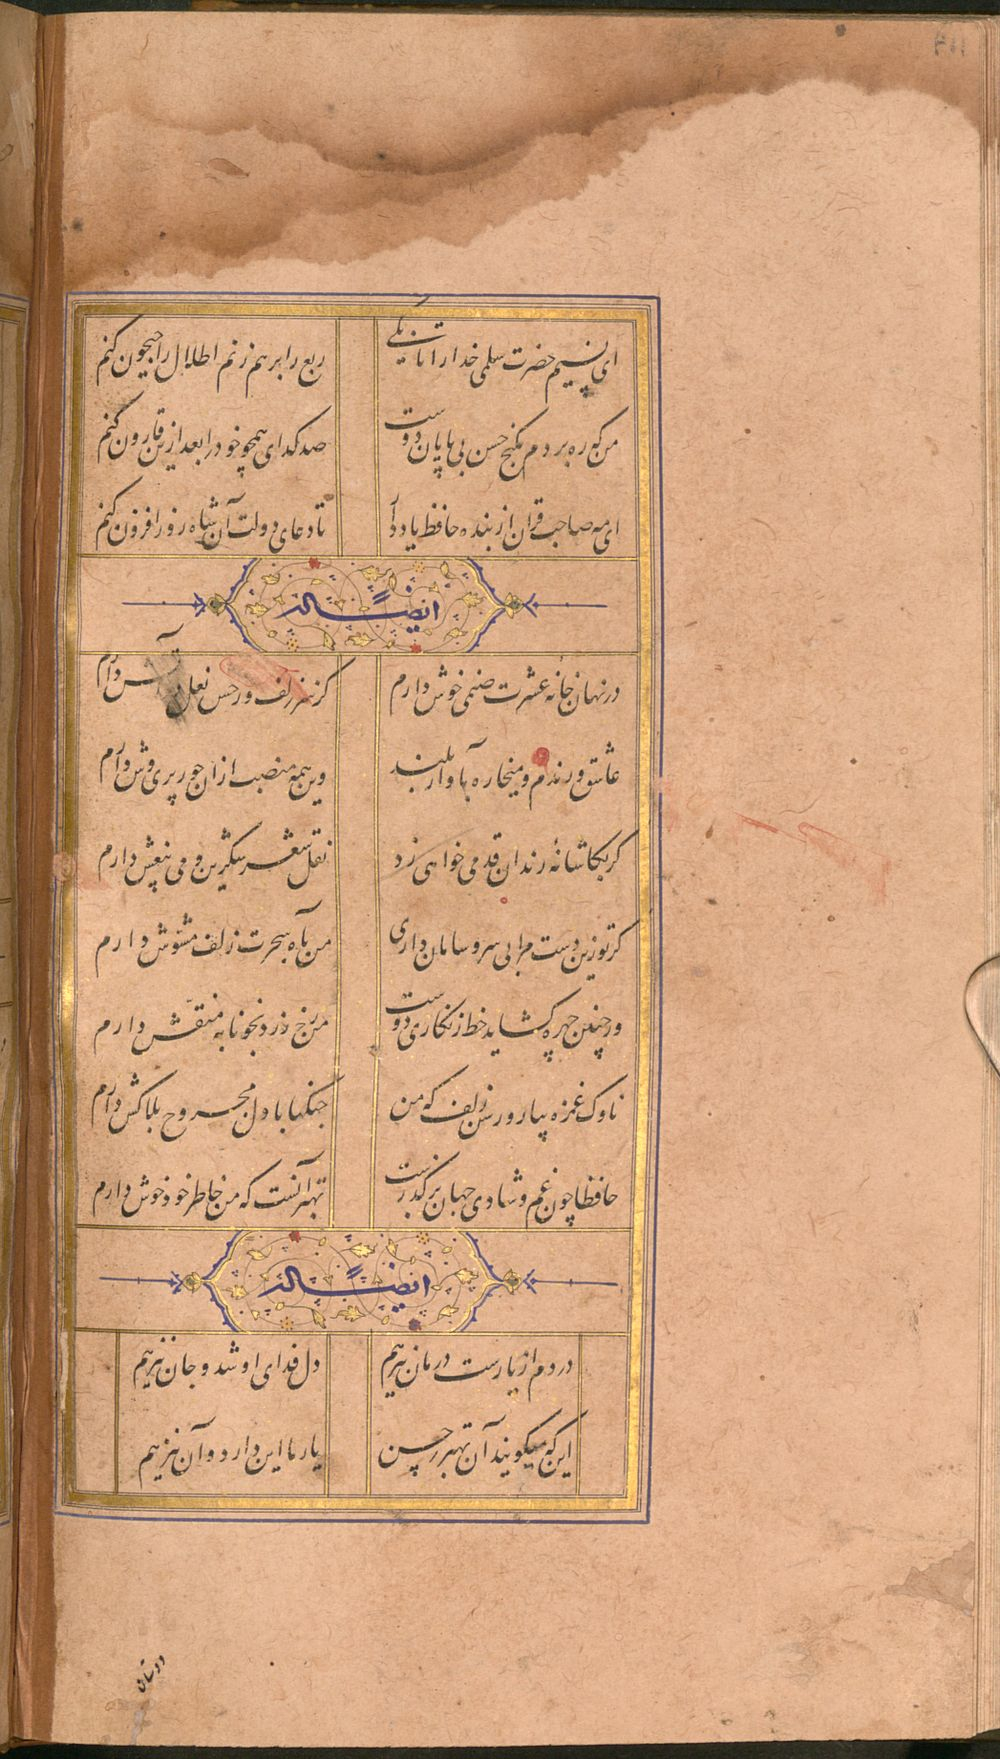 ای نسیم حضرت سلمی خدارا تا بکی
ربع را برهم زنم اطلال را جیحون کنم
من که ره بردم بگنج حسن بی پایان دوست
صد گدای همچو خود را بعد ازین قارون کنم
ای مه صاحب قران از بنده حافظ یاد آر
تا دعای دولت آن شاه روز افزون کنم
ایضاً له
در نهان خانهٔ عشرت صنمی خوش دارم
کز سر زلف و رخش نعل در آتش دارم
عاشق و رندم و میخاره بآواز بلند
وین همه منصب از آن حور پری وش دارم
گر بکاشانهٔ رندان قدمی خواهی زد
نقل شعر شکرین و می بیغش دارم
گر تو زین دست مرا بی سر و سامان داری
من بآه سحرت زلف مشوّش دارم
ور چنین چهره گشاید خط زنگاری دوست
من رخ زرد بخونابه منقّش دارم
ناوک غمزه بیار و رسن زلف که من
جنگها با دل مجروح بلاکش دارم
حافظا چون غم و شادی جهان برگذرست
بهتر آنست که من خاطر خود خوش دارم
ایضاً له
دردم از یارست درمان نیز هم
دل فدای او شد و جان نیز هم
این که میگویند آن بهتر ز حسن
یار ما این دارد و آن نیز هم
دوستان